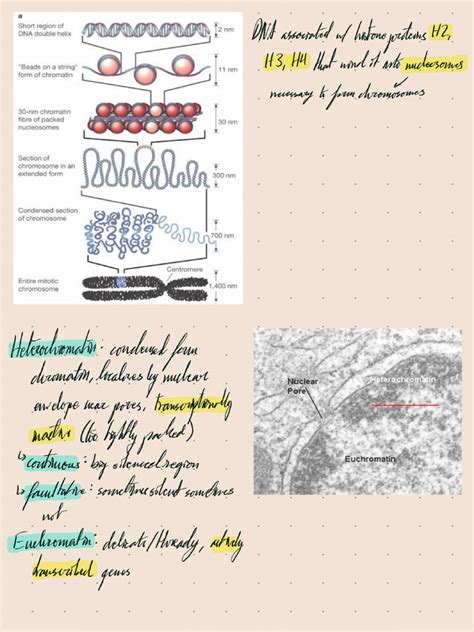 a
Short region of
DNA double helix
2 nm
"Beads on a string"
form of chromatin
11 nm
30-nm chromatin
fibre of packed
nucleosomes
30 nm
Section of
chromosome in an
extended form
300 nm
Condensed section
of chromosome
700 nm
Centromere
Entire mitotic
chromosome
1,400 nm
DNA associated w/ histone proteins H2,
H3, H4 that wind it into nucleosomes
necessary to form chromosomes
Heterochromatin: condensed form
chromatin, localizes by nuclear
envelope near pores, transcriptionally
inactive (too tightly packed).
↳ continuous: big silenced region
↳ facultative: sometimes silent sometimes
not
Euchromatin: delicate/thready, actively
transcribed genes
Nuclear
Pore
Heterochromatin
Euchromatin